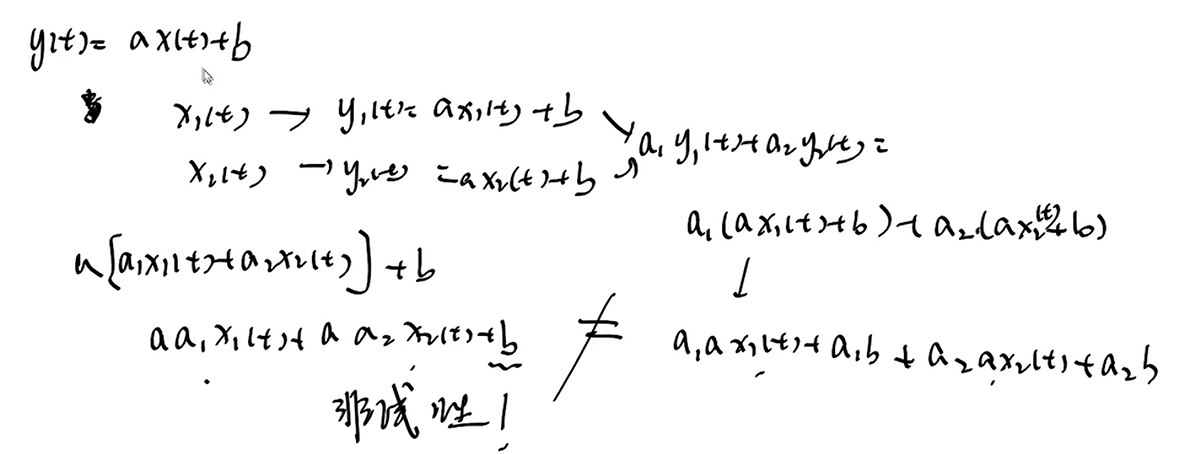 y(t)= ax(t)+b
x₁(t) → y₁(t)= ax₁(t)+b
x₂(t) → y₂(t) =ax₂(t)+b
a₁y₁(t)+a₂y₂(t)=
a₁(ax₁(t)+b)+a₂(ax₂(t)+b)
↓
a[a₁x₁(t)+a₂x₂(t)]+b
aa₁x₁(t)+aa₂x₂(t)+b ≠ a₁ax₁(t)+a₁b+a₂ax₂(t)+a₂b
非线性!